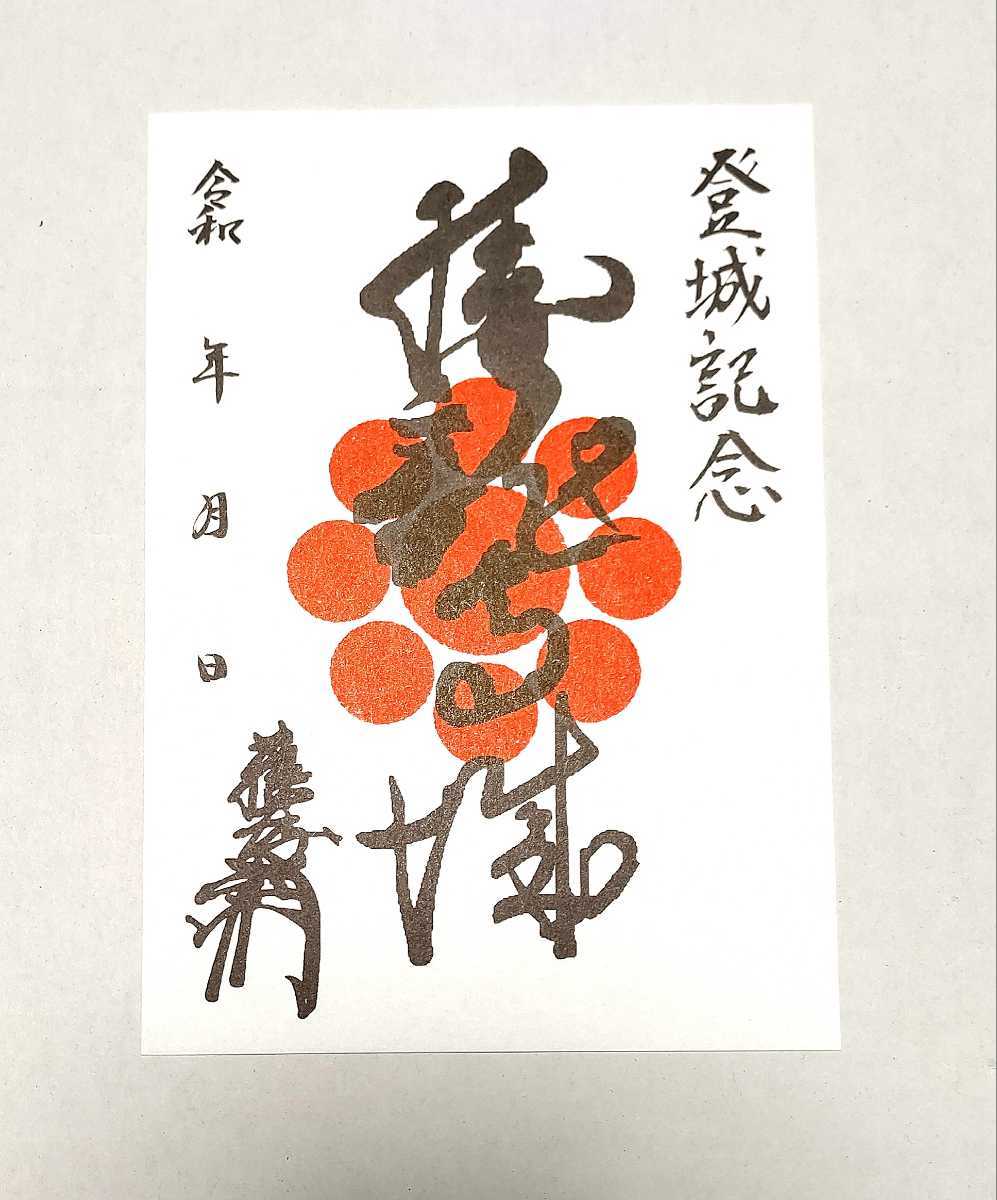 登城記念
勝龍寺城
令和 年 月 日
藤孝